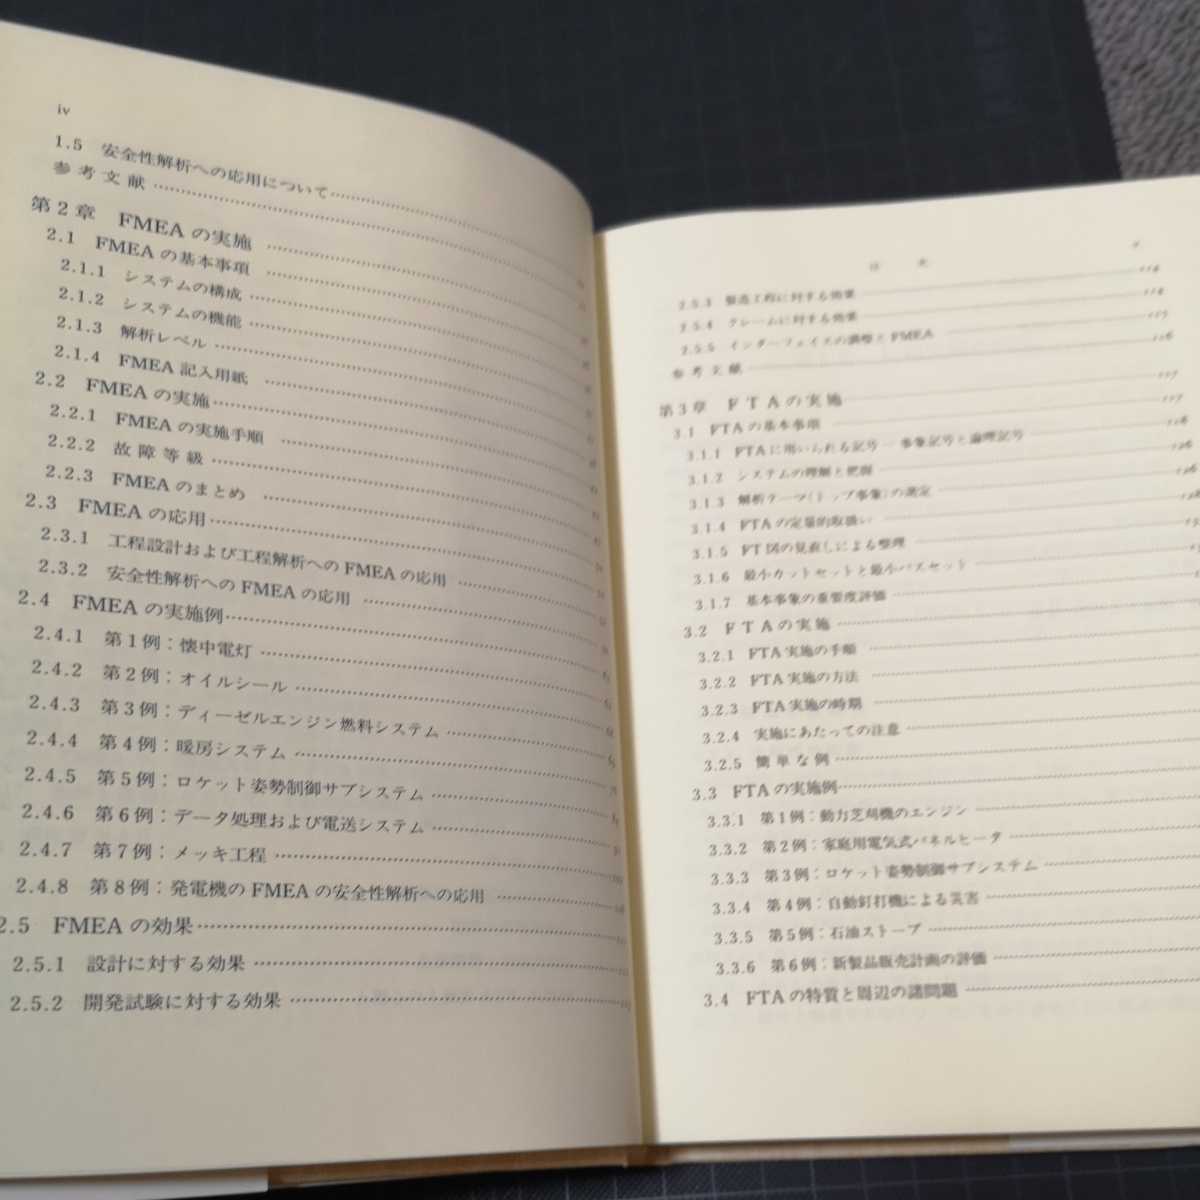 iv
1.5 安全性解析への応用について
参考文献
第2章 FMEAの実施
2.1 FMEAの基本事項
2.1.1 システムの構成
2.1.2 システムの機能
2.1.3 解析レベル
2.1.4 FMEA記入用紙
2.2 FMEAの実施
2.2.1 FMEAの実施手順
2.2.2 故障等級
2.2.3 FMEAのまとめ
2.3 FMEAの応用
2.3.1 工程設計および工程解析へのFMEAの応用
2.3.2 安全性解析へのFMEAの応用
2.4 FMEAの実施例
2.4.1 第1例:懐中電灯
2.4.2 第2例:オイルシール
2.4.3 第3例:ディーゼルエンジン燃料システム
2.4.4 第4例:暖房システム
2.4.5 第5例:ロケット姿勢制御サブシステム
2.4.6 第6例:データ処理および電送システム
2.4.7 第7例:メッキ工程
2.4.8 第8例:発電機のFMEAの安全性解析への応用
2.5 FMEAの効果
2.5.1 設計に対する効果
2.5.2 開発試験に対する効果
目次
2.5.3 製造工程に対する効果 114
2.5.4 クレームに対する効果 114
2.5.5 インターフェイスの調整とFMEA 115
参考文献 116
第3章 FTAの実施 117
3.1 FTAの基本事項 117
3.1.1 FTAに用いられる記号―事象記号と論理記号 118
3.1.2 システムの理解と把握 126
3.1.3 解析テーマ(トップ事象)の選定 126
3.1.4 FTAの定量的取扱い 128
3.1.5 FT図の見直しによる整理
3.1.6 最小カットセットと最小パスセット
3.1.7 基本事象の重要度評価
3.2 FTAの実施
3.2.1 FTA実施の手順
3.2.2 FTA実施の方法
3.2.3 FTA実施の時期
3.2.4 実施にあたっての注意
3.2.5 簡単な例
3.3 FTAの実施例
3.3.1 第1例:動力芝刈機のエンジン
3.3.2 第2例:家庭用電気式パネルヒータ
3.3.3 第3例:ロケット姿勢制御サブシステム
3.3.4 第4例:自動釘打機による災害
3.3.5 第5例:石油ストーブ
3.3.6 第6例:新製品販売計画の評価
3.4 FTAの特質と周辺の諸問題